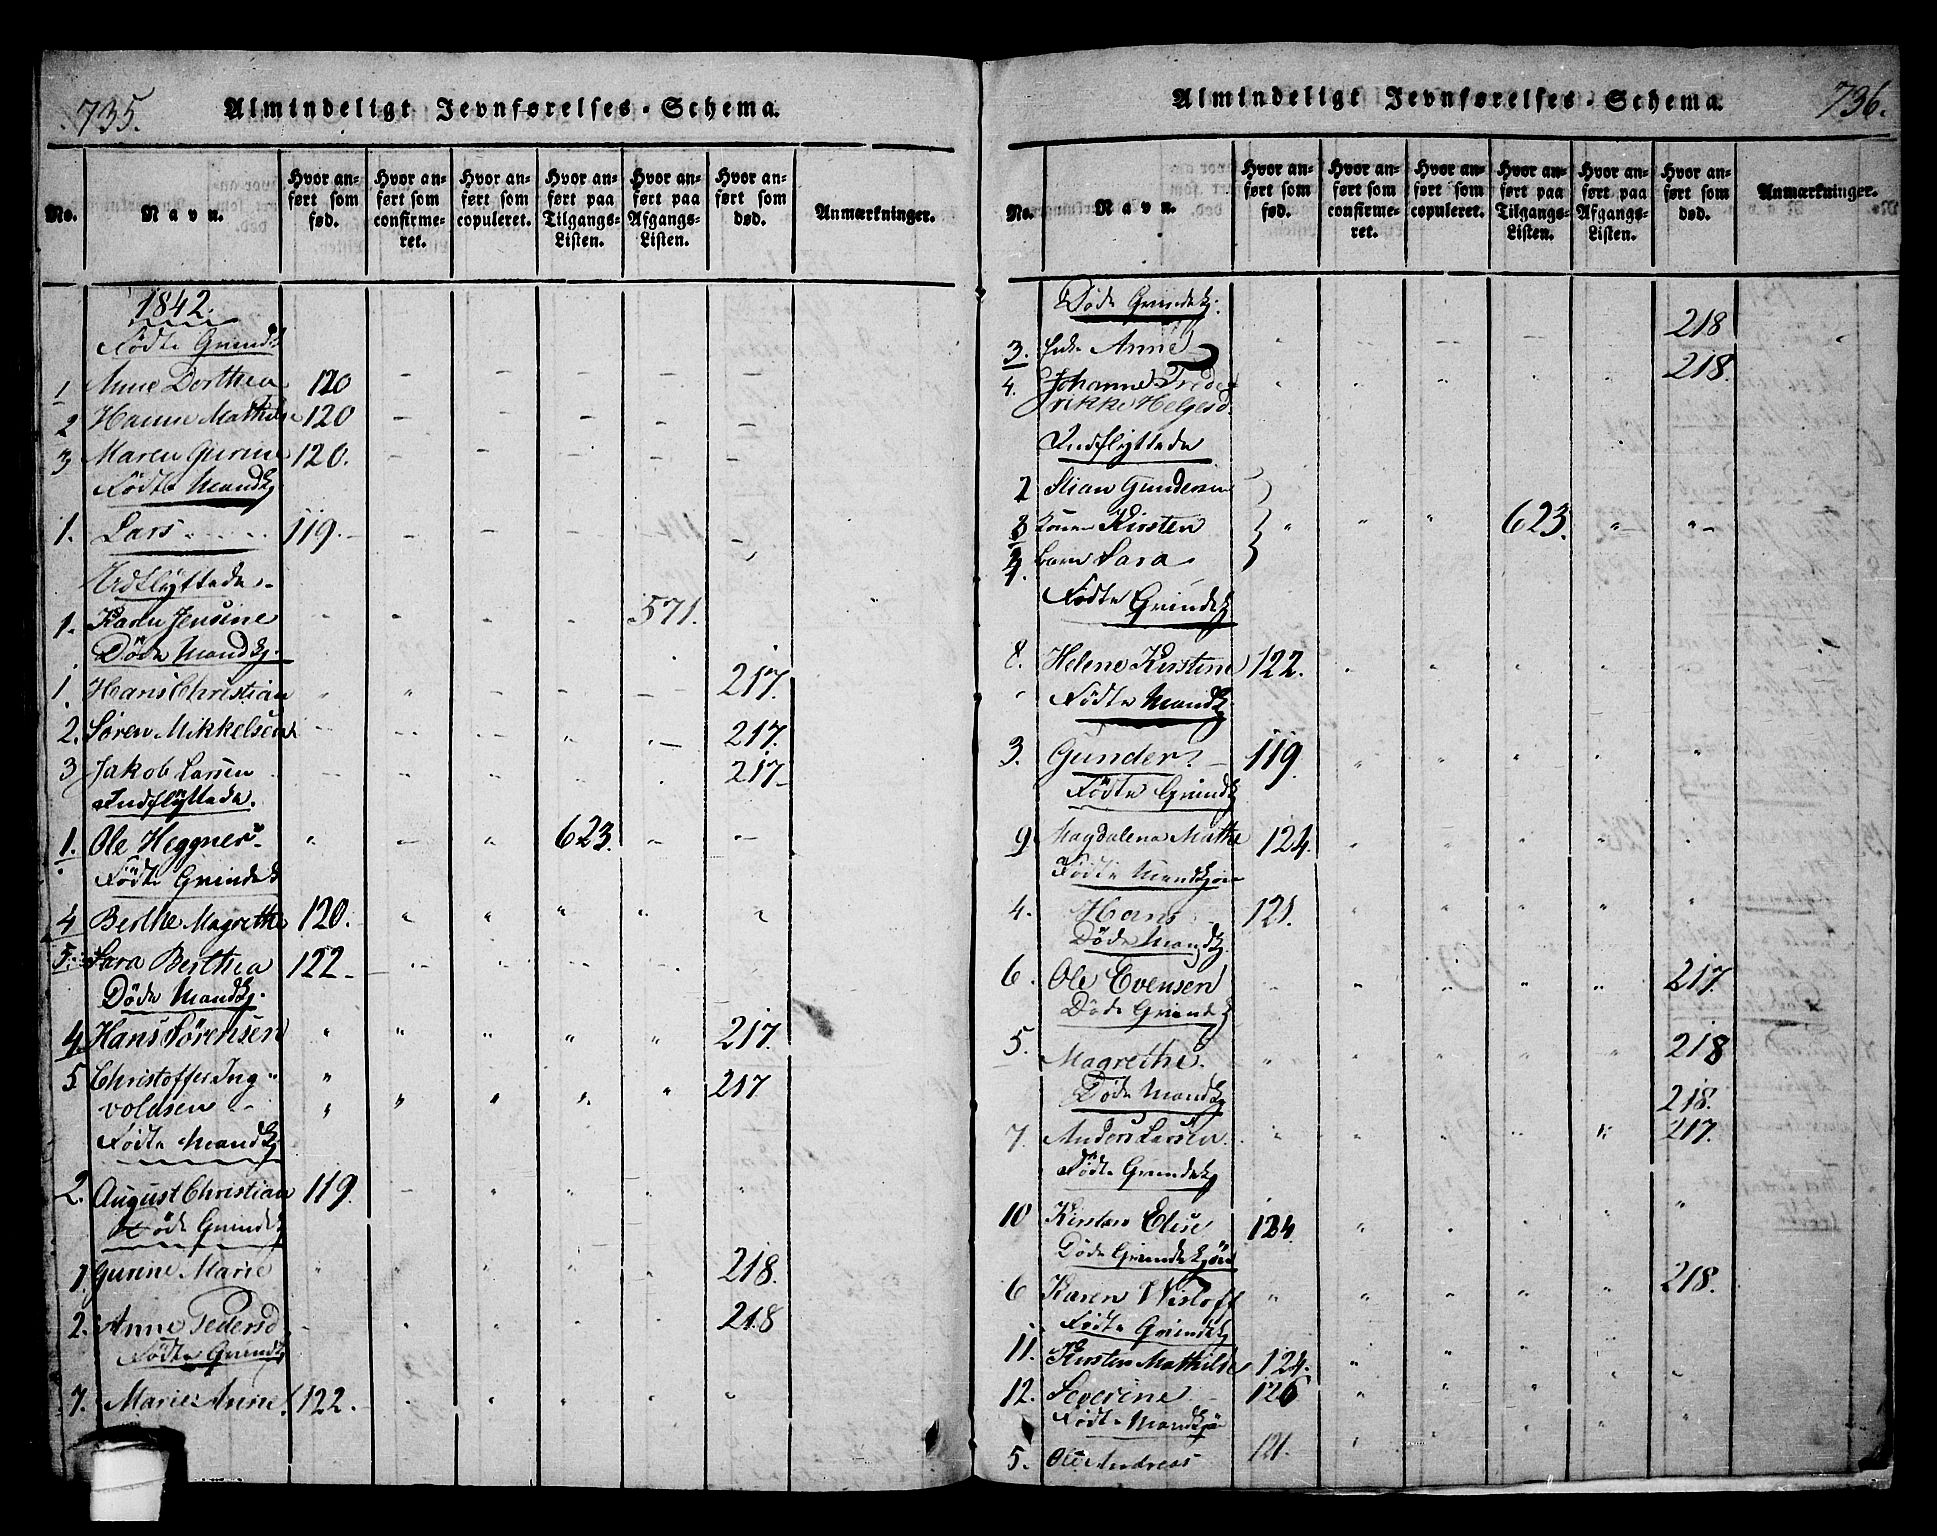 735.
Almindeligt Jevnførelses-Schema.
No.
Navn.
Hvor anført som fød.
Hvor anført som confirmeret.
Hvor anført som copuleret.
Hvor anført paa Tilgangs-Listen.
Hvor anført paa Afgangs-Listen.
Hvor anført som død.
Anmærkninger.
1842.
Födte Qvindek
1 Anne Dorthea 120
2 Hanne Mathilde 120
3 Maren Gurine 120.
Födte Mandkj
1. Lars 119.
Udflÿttede
1. Karen Jensine 571.
Döde Mandkj.
1. Hans Christian 217.
2. Sören Mikkelsen 217.
3 Jakob Larsen 217
Indflÿttede.
1. Ole Heggner 623.
Födte Qvindek
4 Berthe Magrethe 120.
5. Sara Berthea 122
Döde Mandkj.
4. Hans Sörensen 217.
5 Christoffer Ing-
voldsen 217
Födte Mandkj
2. August Christian 119.
Döde Qvindekj
1. Gurine Marie 218.
2. Anne Pedersd 218
Födte Qvindekj
7. Marie Anne 122.
736.
Almindeligt Jevnførelses-Schema.
No.
Navn.
Hvor anført som fød.
Hvor anført som confirmeret.
Hvor anført som copuleret.
Hvor anført paa Tilgangs-Listen.
Hvor anført paa Afgangs-Listen.
Hvor anført som død.
Anmærkninger.
Döde Qvindekj.
3. Anne 218
4. Johanne Fred-
rikke Helgesd. 218.
Indflyttede
2 Stian Gundersen
3 Kone Kirsten 623.
4. barn Sara
Födte Qvindekj
8. Helene Kirstine 122.
Födte Mandkj.
3. Gunder 119.
Födte Qvindkj
9 Magdalena Mathea 124.
Födte Mandkjön
4. Hans 121.
Döde Mandkj.
6. Ole Evensen 217.
Döde Qvindekj
5. Magrethe. 218
Döde Mandkj 218.
7. Anders Larsen 217.
Födte Qvindekj
10 Kirsten Elise 124.
Döde Qvindekjön
6 Karen Wisloff 218.
Födte Qvindekj
11. Kirsten Mathilde 124.
12. Severine 126
Födte Mandkjön
5. Ole Andreas 121.